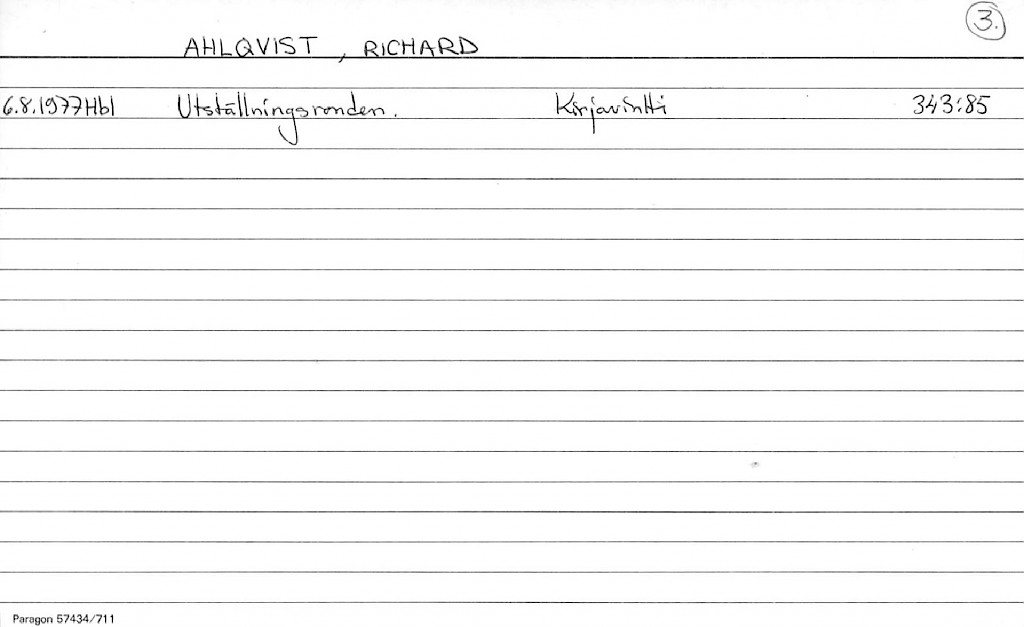 3.
AHLQVIST, RICHARD
6.8.1977 Hbl Utställningsronden. Kirjavintti 343:85
Paragon 57434/711